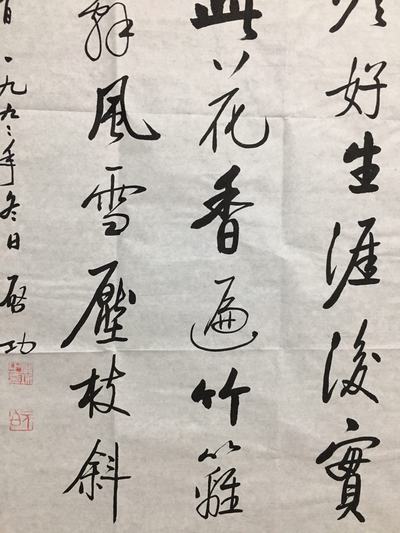 好生涯後實
此花香遍竹籬
辭風雪壓枝斜
一九九二年冬日 启功